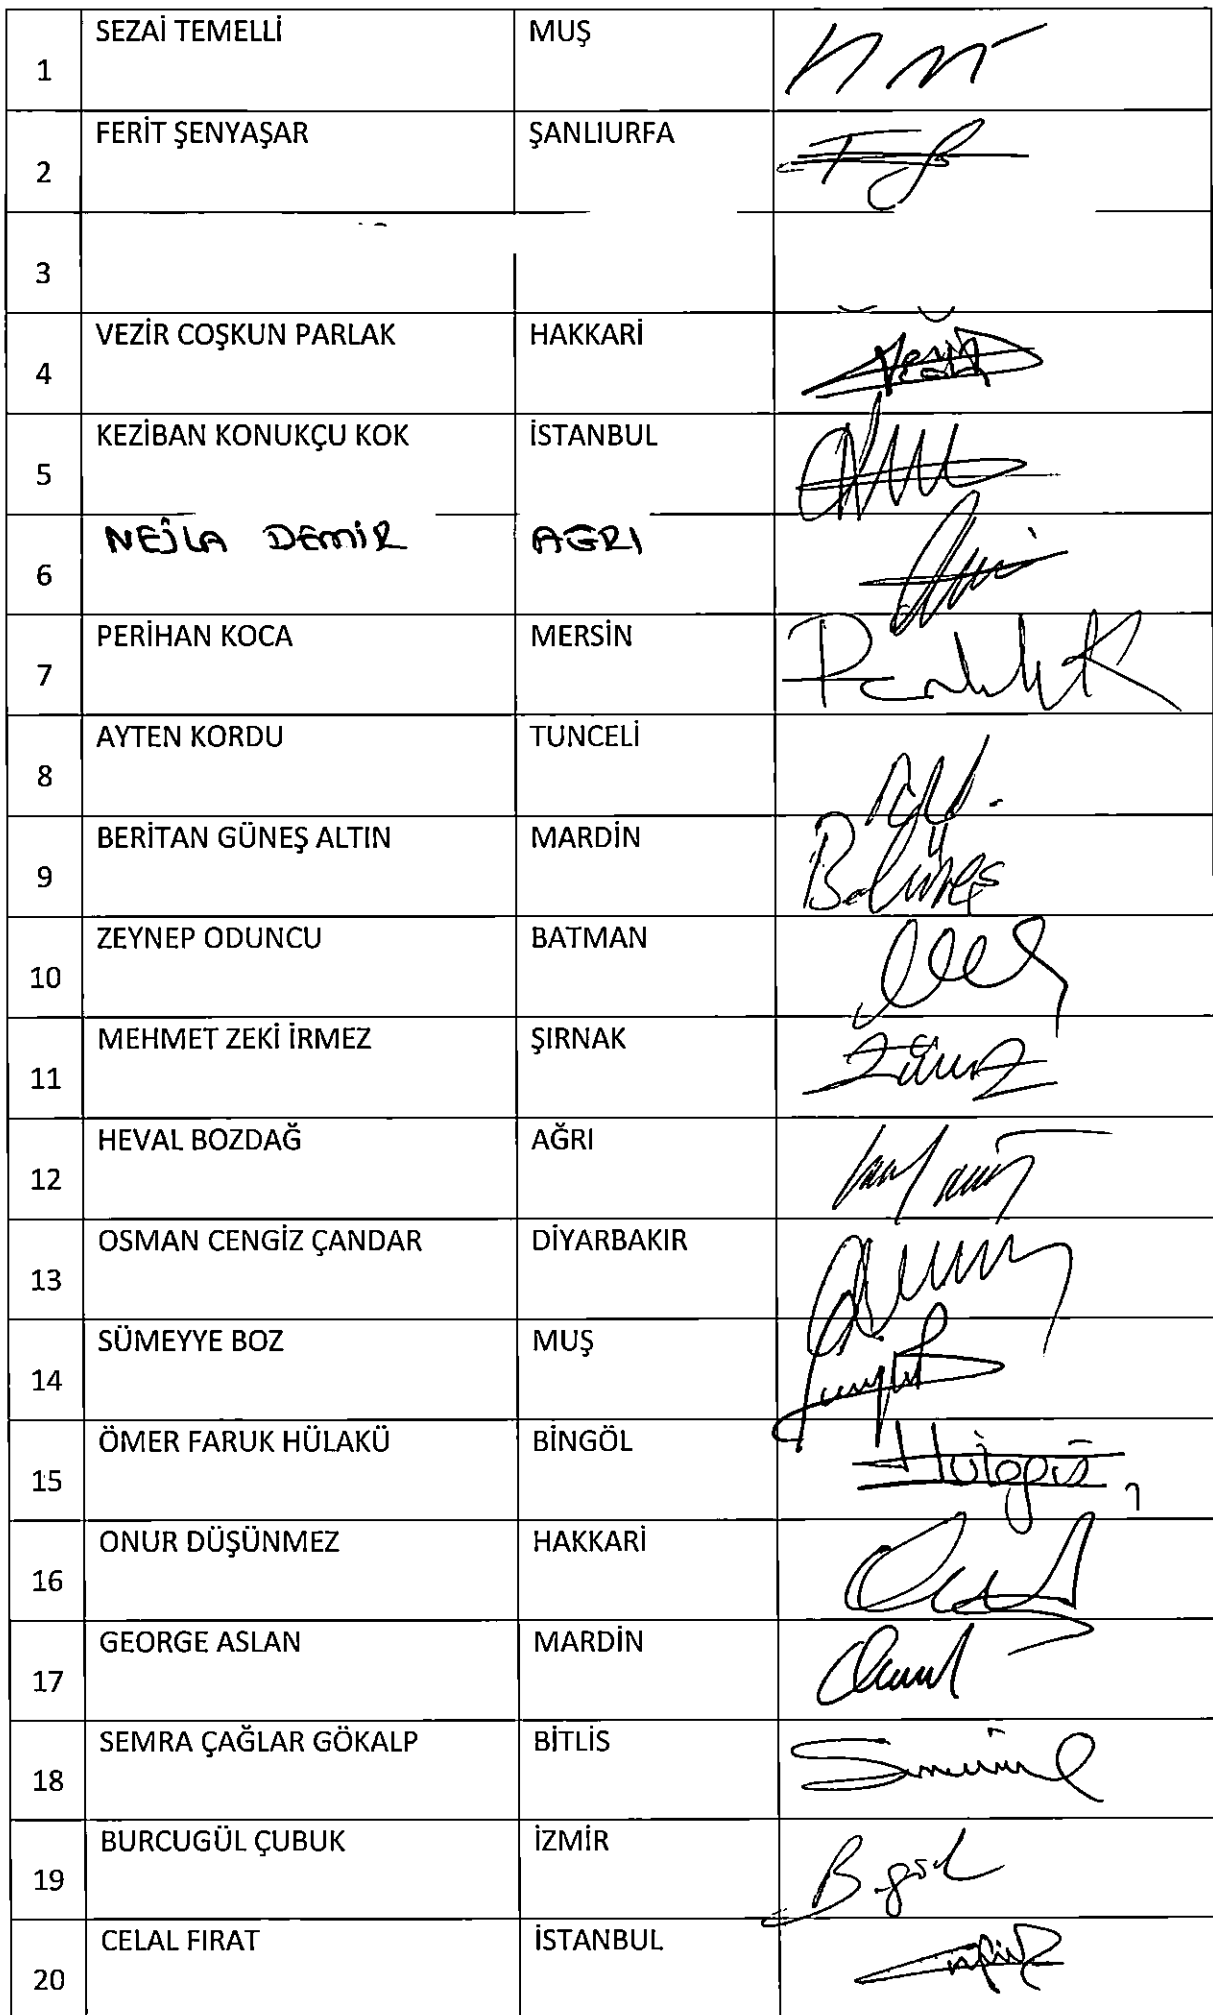 1 SEZAİ TEMELLİ MUŞ
2 FERİT ŞENYAŞAR ŞANLIURFA
3
4 VEZİR COŞKUN PARLAK HAKKARİ
5 KEZİBAN KONUKÇU KOK İSTANBUL
6 NEJLA DEMİR AĞRI
7 PERİHAN KOCA MERSİN
8 AYTEN KORDU TUNCELİ
9 BERİTAN GÜNEŞ ALTIN MARDİN
10 ZEYNEP ODUNCU BATMAN
11 MEHMET ZEKİ İRMEZ ŞIRNAK
12 HEVAL BOZDAĞ AĞRI
13 OSMAN CENGİZ ÇANDAR DİYARBAKIR
14 SÜMEYYE BOZ MUŞ
15 ÖMER FARUK HÜLAKÜ BİNGÖL
16 ONUR DÜŞÜNMEZ HAKKARİ
17 GEORGE ASLAN MARDİN
18 SEMRA ÇAĞLAR GÖKALP BİTLİS
19 BURCUGÜL ÇUBUK İZMİR
20 CELAL FIRAT İSTANBUL